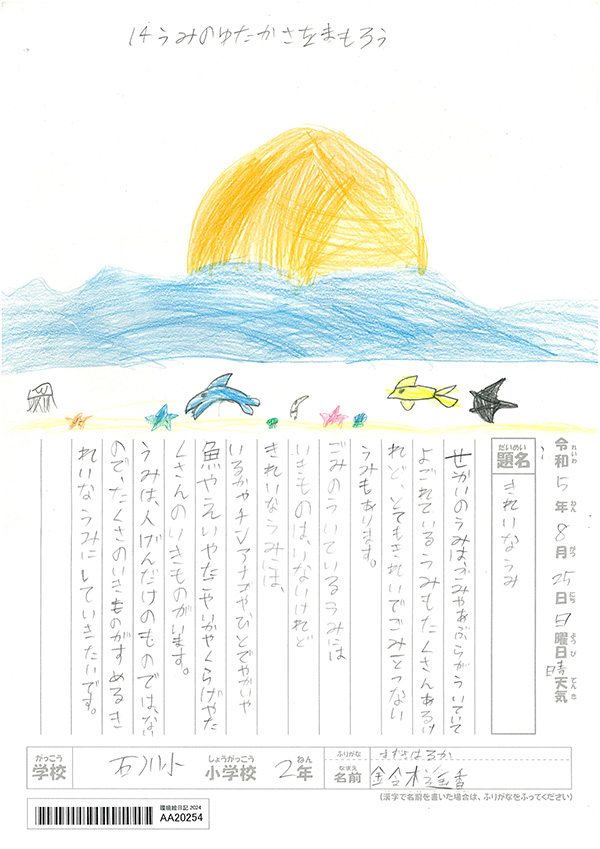 14うみのゆたかさをまもろう
令和5年8月25日日曜日晴天気
れいわ ねん がつ にち ようび てんき
だいめい
題名
きれいなうみ
せかいのうみは、ごみやあぶらがういていて
よごれているうみもたくさんあるけ
れど、とてもきれいでごみ一つない
うみもあります。
ごみのういているうみには
いきものは、いないけれど
きれいなうみには、
いるかやチンアナゴや、ひとでやかいや
魚やえいやたこやいかやくらげやた
くさんのいきものがいます。
うみは、人げんだけのものでは、ない
ので、たくさのいきものがすめるき
れいなうみにしていきたいです。
がっこう
学校
石川小
しょうがっこう
小学校
2年
ねん
ふりがな
はるか
なまえ
名前
遥香
(漢字で名前を書いた場合は、ふりがなをふってください)
環境絵日記 2024
AA20254